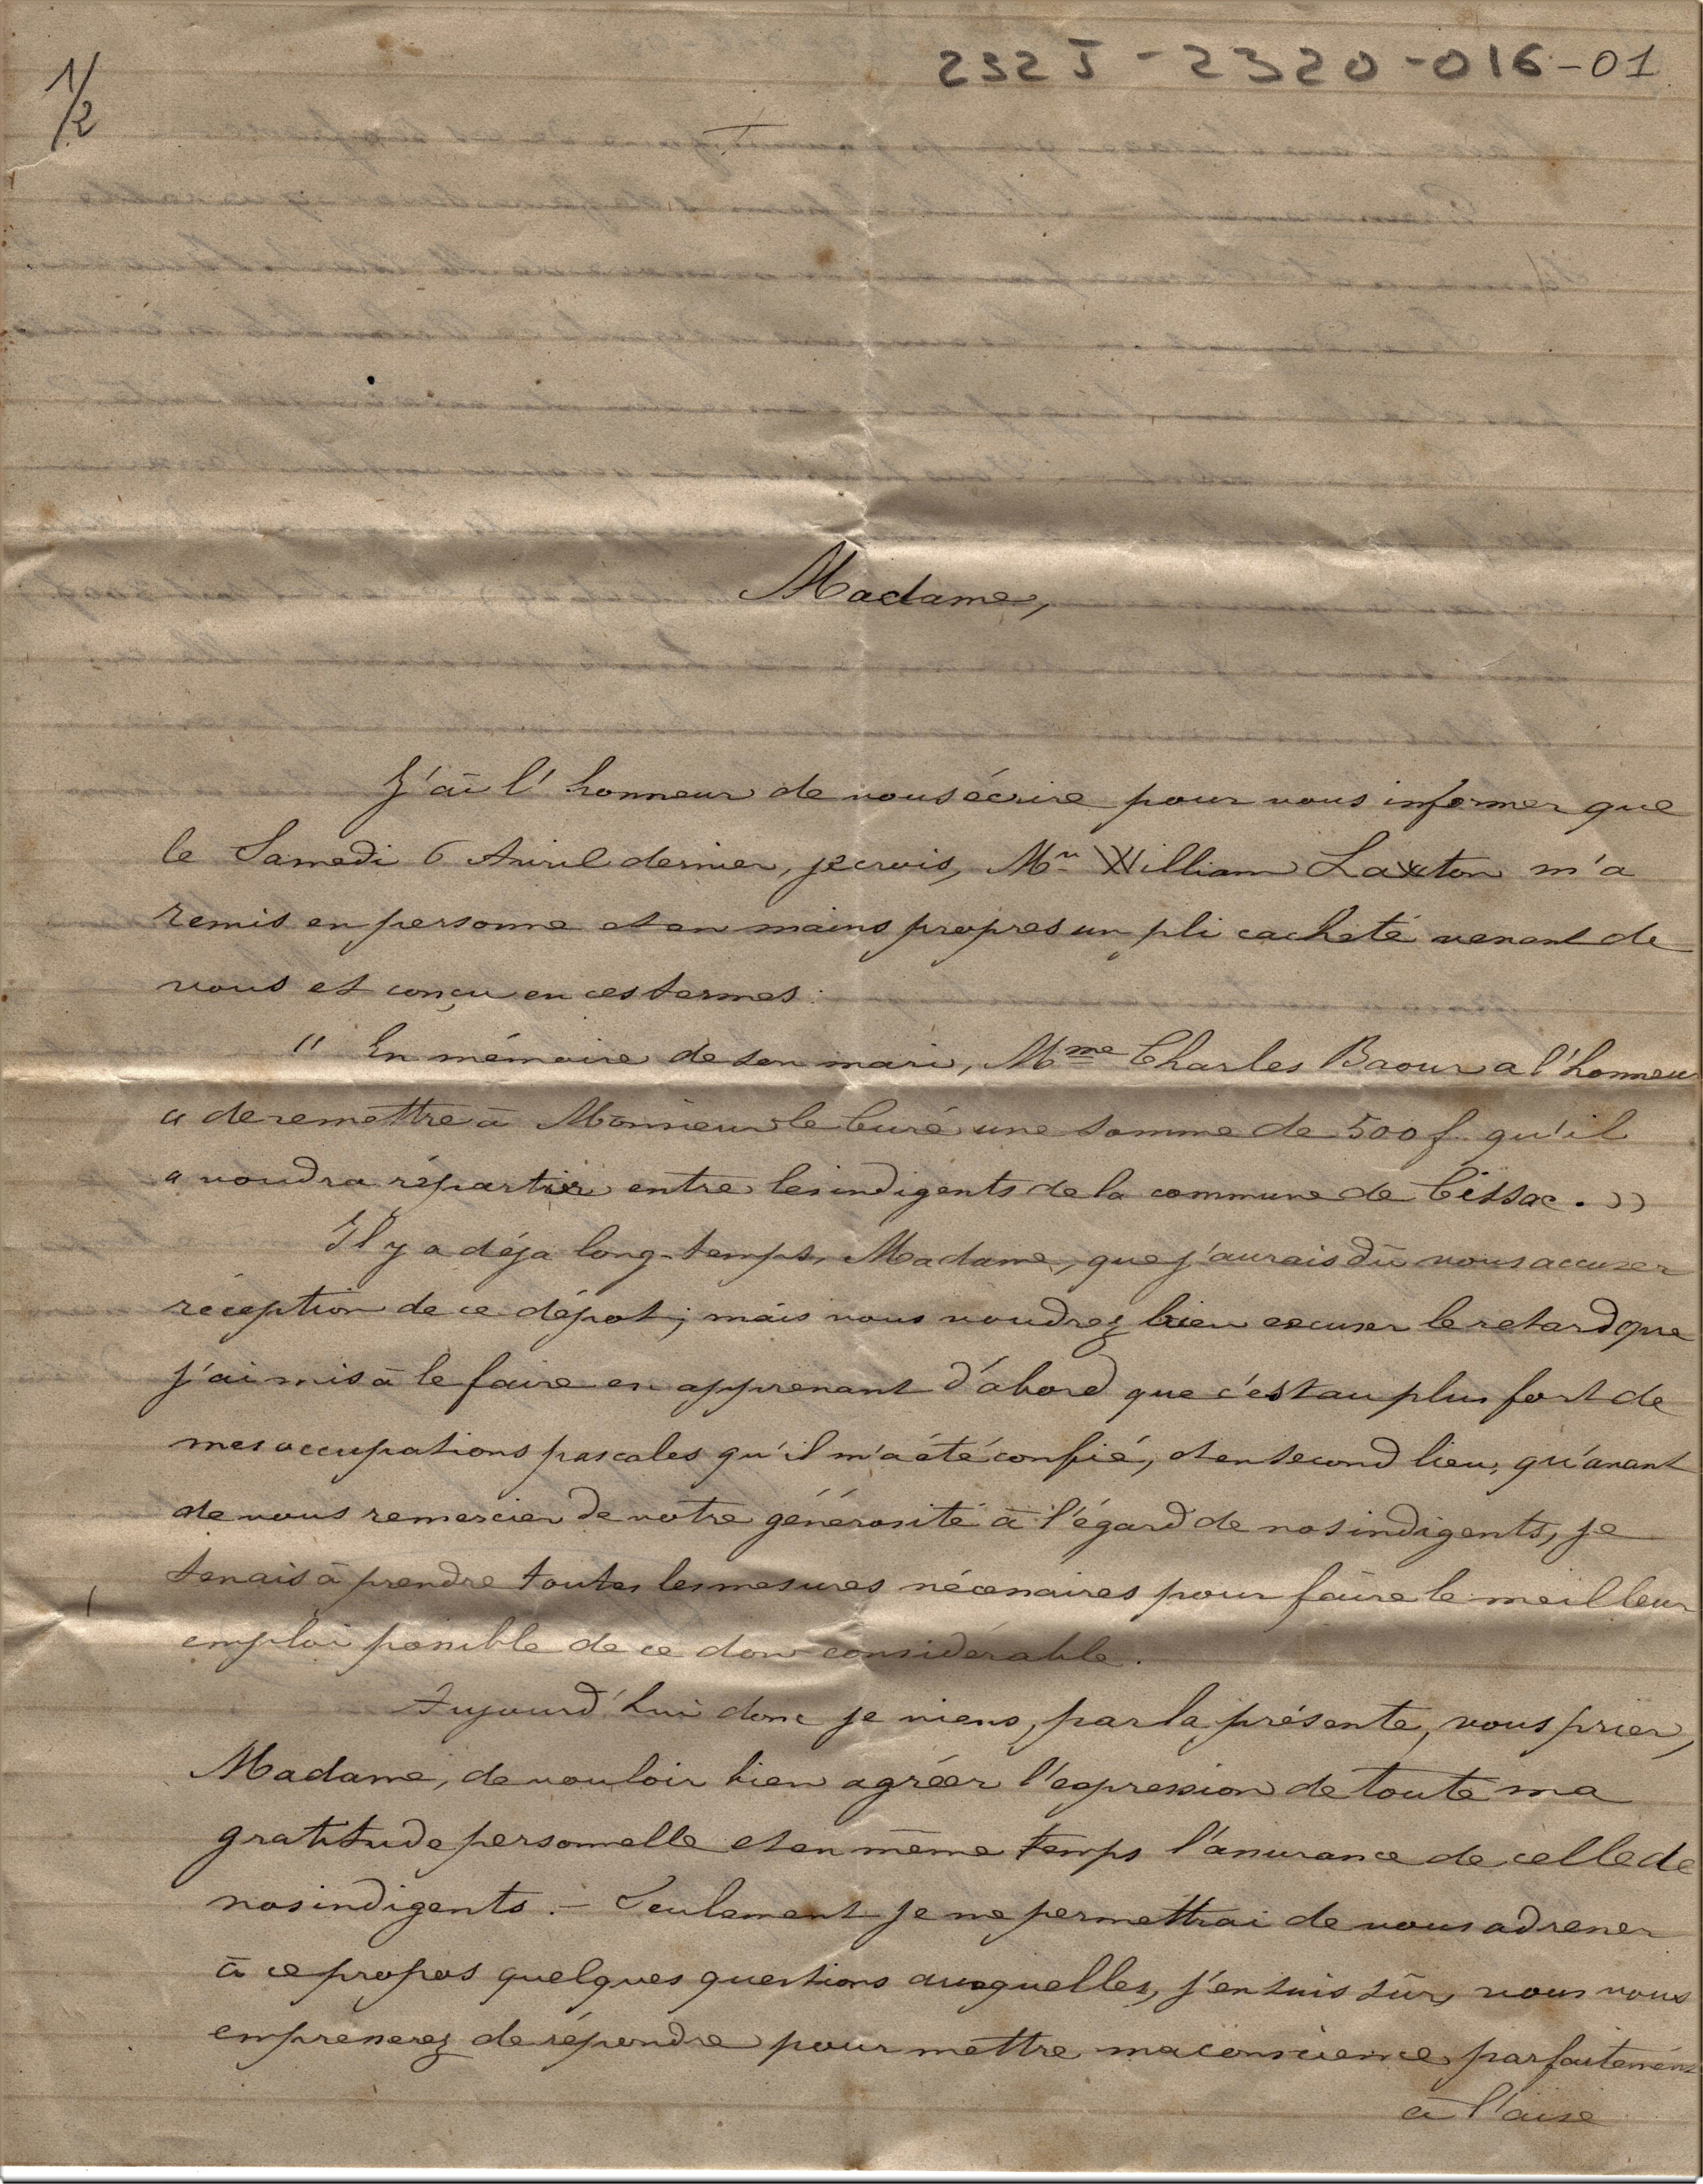 1/2
232 J - 2320 - 016 - 01
Madame,
J'ai l'honneur de vous écrire pour vous informer que
le Samedi 6 Avril dernier, je crois, Mr William Laxton m'a
remis en personne et en mains propres un pli cacheté venant de
vous et conçu en ces termes :
" En mémoire de son mari, Mme Charles Baour a l'honneur
" de remettre à Monsieur le Curé une somme de 500 f. qu'il
" voudra répartir entre les indigents de la commune de Cissac. »
Il y a déja long-temps, Madame, que j'aurais dû vous accuser
réception de ce dépot ; mais vous voudrez bien excuser le retard que
j'ai mis à le faire en apprenant d'abord que c'est au plus fort de
mes occupations pascales qu'il m'a été confié, et en second lieu, qu'avant
de vous remercier de votre générosité à l'égard de nos indigents, je
tenais à prendre toutes les mesures nécessaires pour faire le meilleur
emploi possible de ce don considérable.
Aujourd'hui donc je viens, par la présente, vous prier,
Madame, de vouloir bien agréer l'expression de toute ma
gratitude personnelle et en même temps l'assurance de celle de
nos indigents. - Seulement je me permettrai de vous adresser
à ce propos quelques questions auxquelles, j'en suis sûr, vous vous
empresserez de répondre pour mettre ma conscience parfaitement
à l'aise